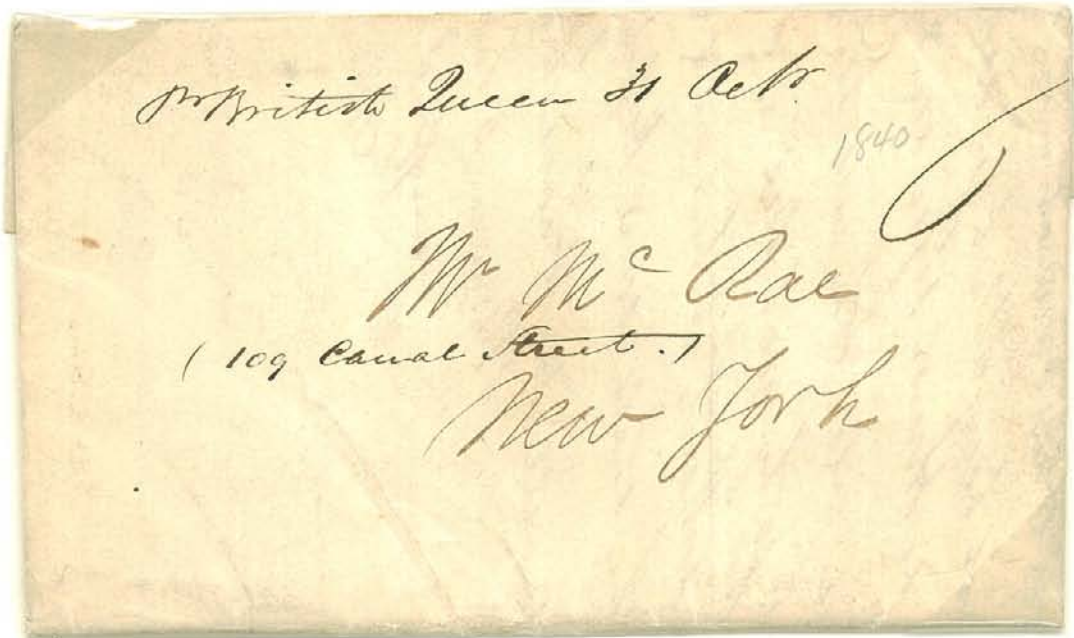 Pr British Queen 31 Octr.
1840
6
Mr Mc Rae
(109 Canal Street.)
New York